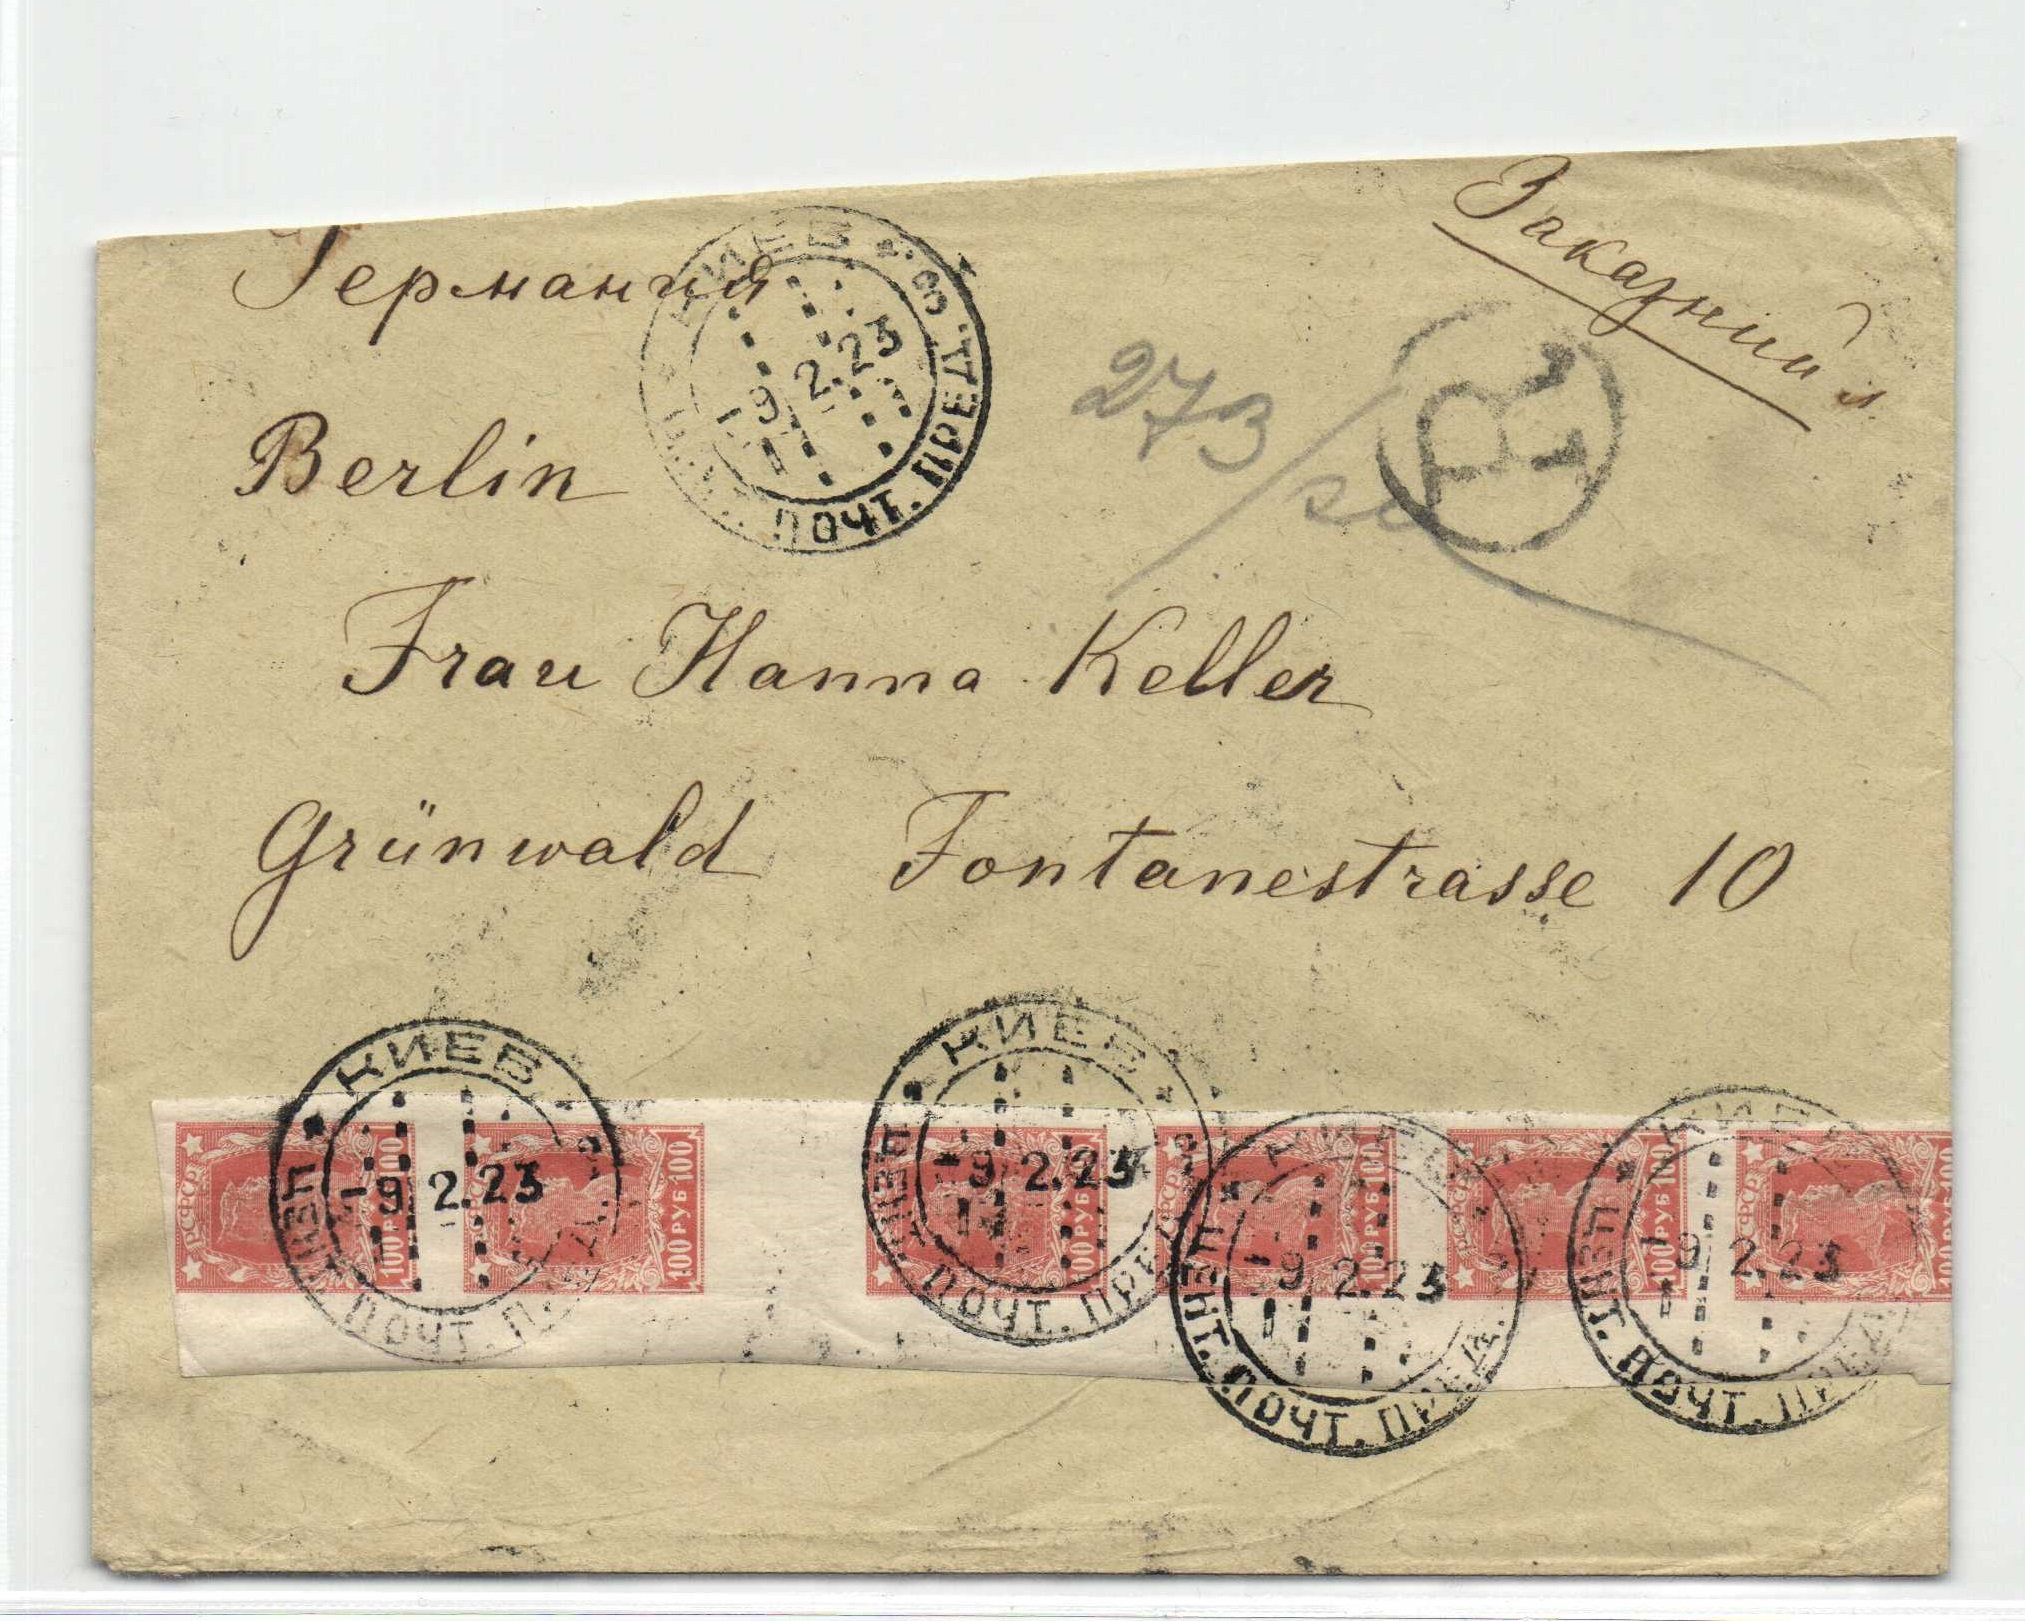 Заказний
Германия
Berlin
273
R
Frau Hanna Keller
Grünwald Fontanestrasse 10
КИЕВ
ПОЧТ. ПРЕД.
-9.2.23
КИЕВ
ПОЧТ. ПРЕД.
-9 2.23
КИЕВ
ПОЧТ. ПРЕД.
-9 2.23
ПОЧТ. ПРЕД.
-9 2.23
ПОЧТ. ПРЕД.
-9 2.23
РСФСР 100 РУБ 100
РСФСР 100 РУБ 100
100 РУБ 100
РСФСР 100 РУБ 100
РСФСР 100 РУБ 100
РСФСР 100 РУБ 100